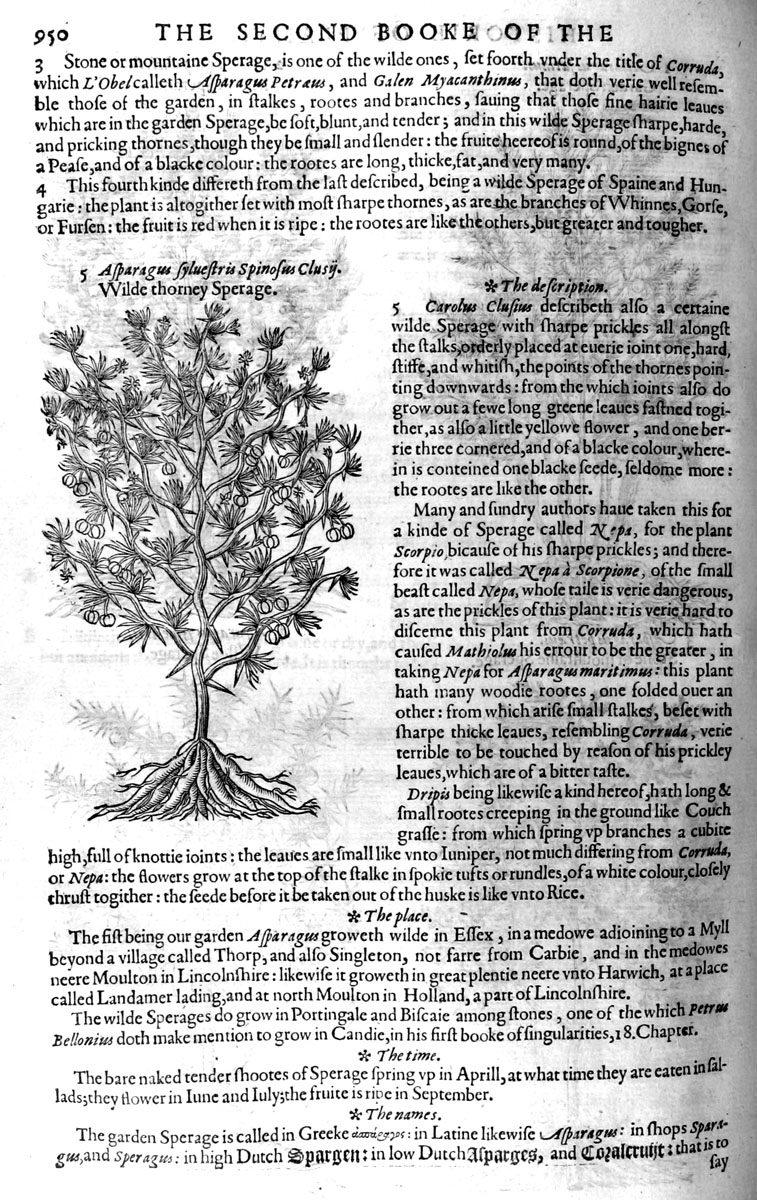 950 THE SECOND BOOKE OF THE
3 Stone or mountaine Sperage, is one of the wilde ones, ſet foorth vnder the title of Corruda,
which L'Obel calleth Aſparagus Petræus, and Galen Myacanthinus, that doth verie well reſem-
ble thoſe of the garden, in ſtalkes, rootes and branches, ſauing that thoſe fine hairie leaues
which are in the garden Sperage, be ſoft, blunt, and tender; and in this wilde Sperage ſharpe, harde,
and pricking thornes, though they be ſmall and ſlender: the fruite heereof is round, of the bignes of
a Peaſe, and of a blacke colour: the rootes are long, thicke, fat, and very many.
4 This fourth kinde differeth from the laſt deſcribed, being a wilde Sperage of Spaine and Hun-
garie: the plant is altogither ſet with moſt ſharpe thornes, as are the branches of Whinnes, Gorſe,
or Furſen: the fruit is red when it is ripe: the rootes are like the others, but greater and tougher.
5 Aſparagus ſylueſtris Spinoſus Cluſij.
Wilde thorney Sperage.
✻ The deſcription.
5 Carolus Cluſius deſcribeth alſo a certaine
wilde Sperage with ſharpe prickles all alongſt
the ſtalks, orderly placed at euerie ioint one, hard,
ſtiffe, and whitiſh, the points of the thornes poin-
ting downwards: from the which ioints alſo do
grow out a fewe long greene leaues faſtned togi-
ther, as alſo a little yellowe flower, and one ber-
rie three cornered, and of a blacke colour, where-
in is conteined one blacke ſeede, ſeldome more:
the rootes are like the other.
Many and ſundry authors haue taken this for
a kinde of Sperage called Nepa, for the plant
Scorpio, bicauſe of his ſharpe prickles; and there-
fore it was called Nepa à Scorpione, of the ſmall
beaſt called Nepa, whoſe taile is verie dangerous,
as are the prickles of this plant: it is verie hard to
diſcerne this plant from Corruda, which hath
cauſed Mathiolus his errour to be the greater, in
taking Nepa for Aſparagus maritimus: this plant
hath many woodie rootes, one folded ouer an
other: from which ariſe ſmall ſtalkes, beſet with
ſharpe thicke leaues, reſembling Corruda, verie
terrible to be touched by reaſon of his prickley
leaues, which are of a bitter taſte.
Dripis being likewiſe a kind hereof, hath long &
ſmall rootes creeping in the ground like Couch
graſſe: from which ſpring vp branches a cubite
high, full of knottie ioints: the leaues are ſmall like vnto Iuniper, not much differing from Corruda,
or Nepa: the flowers grow at the top of the ſtalke in ſpokie tufts or rundles, of a white colour, cloſely
thruſt togither: the ſeede before it be taken out of the huske is like vnto Rice.
✻ The place.
The fiſt being our garden Aſparagus groweth wilde in Eſſex, in a medowe adioining to a Myll
beyond a village called Thorp, and alſo Singleton, not farre from Carbie, and in the medowes
neere Moulton in Lincolnſhire: likewiſe it groweth in great plentie neere vnto Harwich, at a place
called Landamer lading, and at north Moulton in Holland, a part of Lincolnſhire.
The wilde Sperages do grow in Portingale and Biſcaie among ſtones, one of the which Petrus
Bellonius doth make mention to grow in Candie, in his firſt booke of ſingularities, 18. Chapter.
✻ The time.
The bare naked tender ſhootes of Sperage ſpring vp in Aprill, at what time they are eaten in ſal-
lads; they flower in Iune and Iuly; the fruite is ripe in September.
✻ The names.
The garden Sperage is called in Greeke : in Latine likewiſe Aſparagus: in ſhops Spara-
gus, and Speragus: in high Dutch Spargen: in low Dutch Aſparges, and Coralcruijt: that is to
ſay